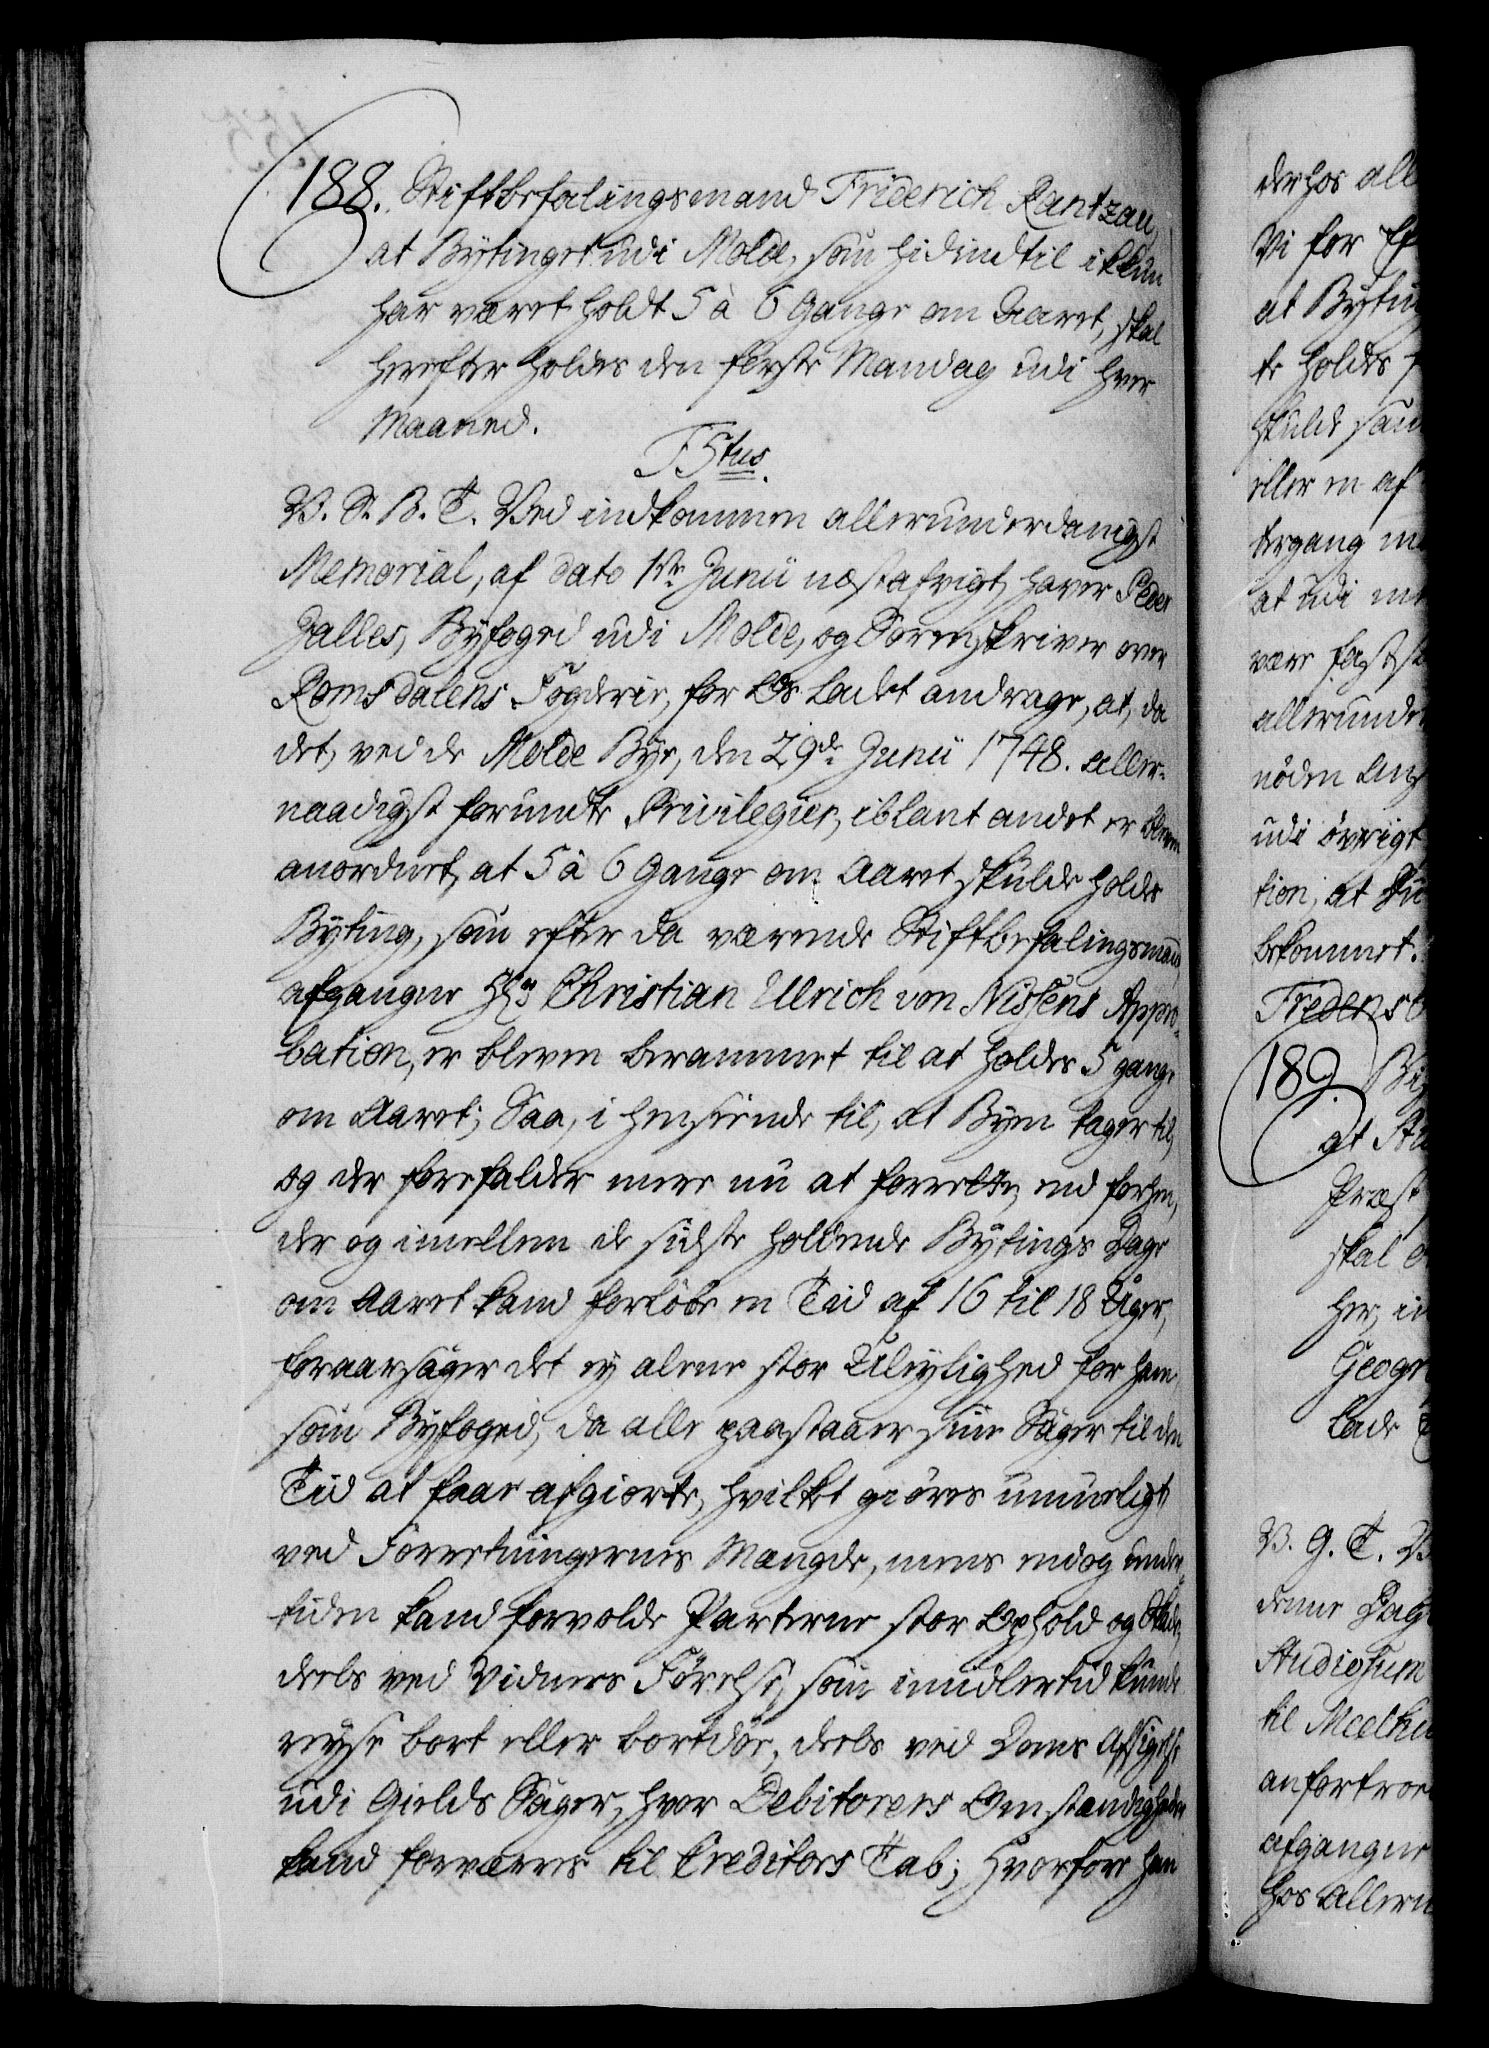 188. Stiftbefalingsmand Friderich Rantzau,
at Bytinget udi Molde, som hidindtil ikkun
har været holdt 5 à 6 Gange om Aaret, skal
herefter holdes den første Mandag udi hver
Maaned.
F5tus.
V. S. B. T. Ved indkommen allerunderdanigst
Memorial, af dato 1ste Junii næstafvigt, haver Peder
Jalles, Byfoged udi Molde, og Sorenskriver over
Romsdalens Fogderie, for Os ladet andrage, at, da
det, ved de Molde Bye, den 29de Junii 1748. aller-
naadigst forundte Privilegier, iblant andet er bleven
anordnet, at 5 à 6 Gange om Aaret skulde holdes
Byting, som efter da værende Stiftbefalingsmand,
afgangne Hr. Christian Ulrich von Nissens Appro-
bation, er bleven berammet til at holdes 5 gange
om Aaret; Saa, i henseende til, at Byen tager til,
og der forefalder mere nu at forrette, end forhen,
der og imellem de sidste holdende Bytings Dage
om Aaret kand forløbe en Tid af 16 til 18 Uger,
foraarsager det ey alene stor Uleylighed for ham,
som Byfoged, da alle paastaaer sine Sager til den
Tid at faae afgiorte, hvilket giøres umueligt
ved Forretningernes Mængde, mens endog under-
tiden kand forvolde Parterne stor Ophold og Skade,
deels ved Vidners Førelse, som imidlertid kunde
reyse bort eller bortdøe, deels ved Doms Afsigelse
udi Gields Sager, hvor Debitorers Omstændigheder
kand forværres til Creditors Tab; Hvorfore han
derhos all
Vi for
at Byting
te holdes
skulde saa
eller en af
tergang
at udi
være fastsat
allerunder
nöden
udi övrigt
tion, at
bekommet.
Fredens
189.
at
Præst
skal
her, i
Geogr
lade
V. G. T. V
denne Dag
Studiosum
til Meelhu
anfortroe
afgangne
hos allern